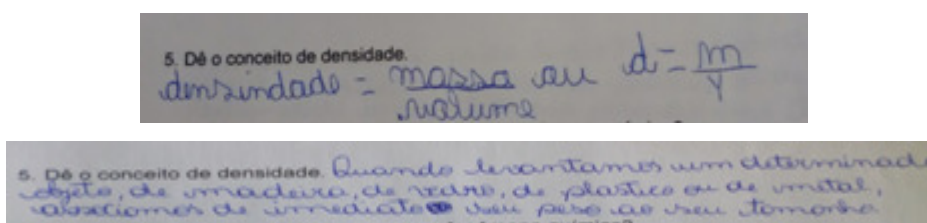 5. Dê o conceito de densidade.
densindade = massa ou d = m
volume V
5. Dê o conceito de densidade. Quando levantamos um determinado
objeto, de madeira, de vidro, de plastico ou de metal,
de imediato seu peso ao seu tamanho